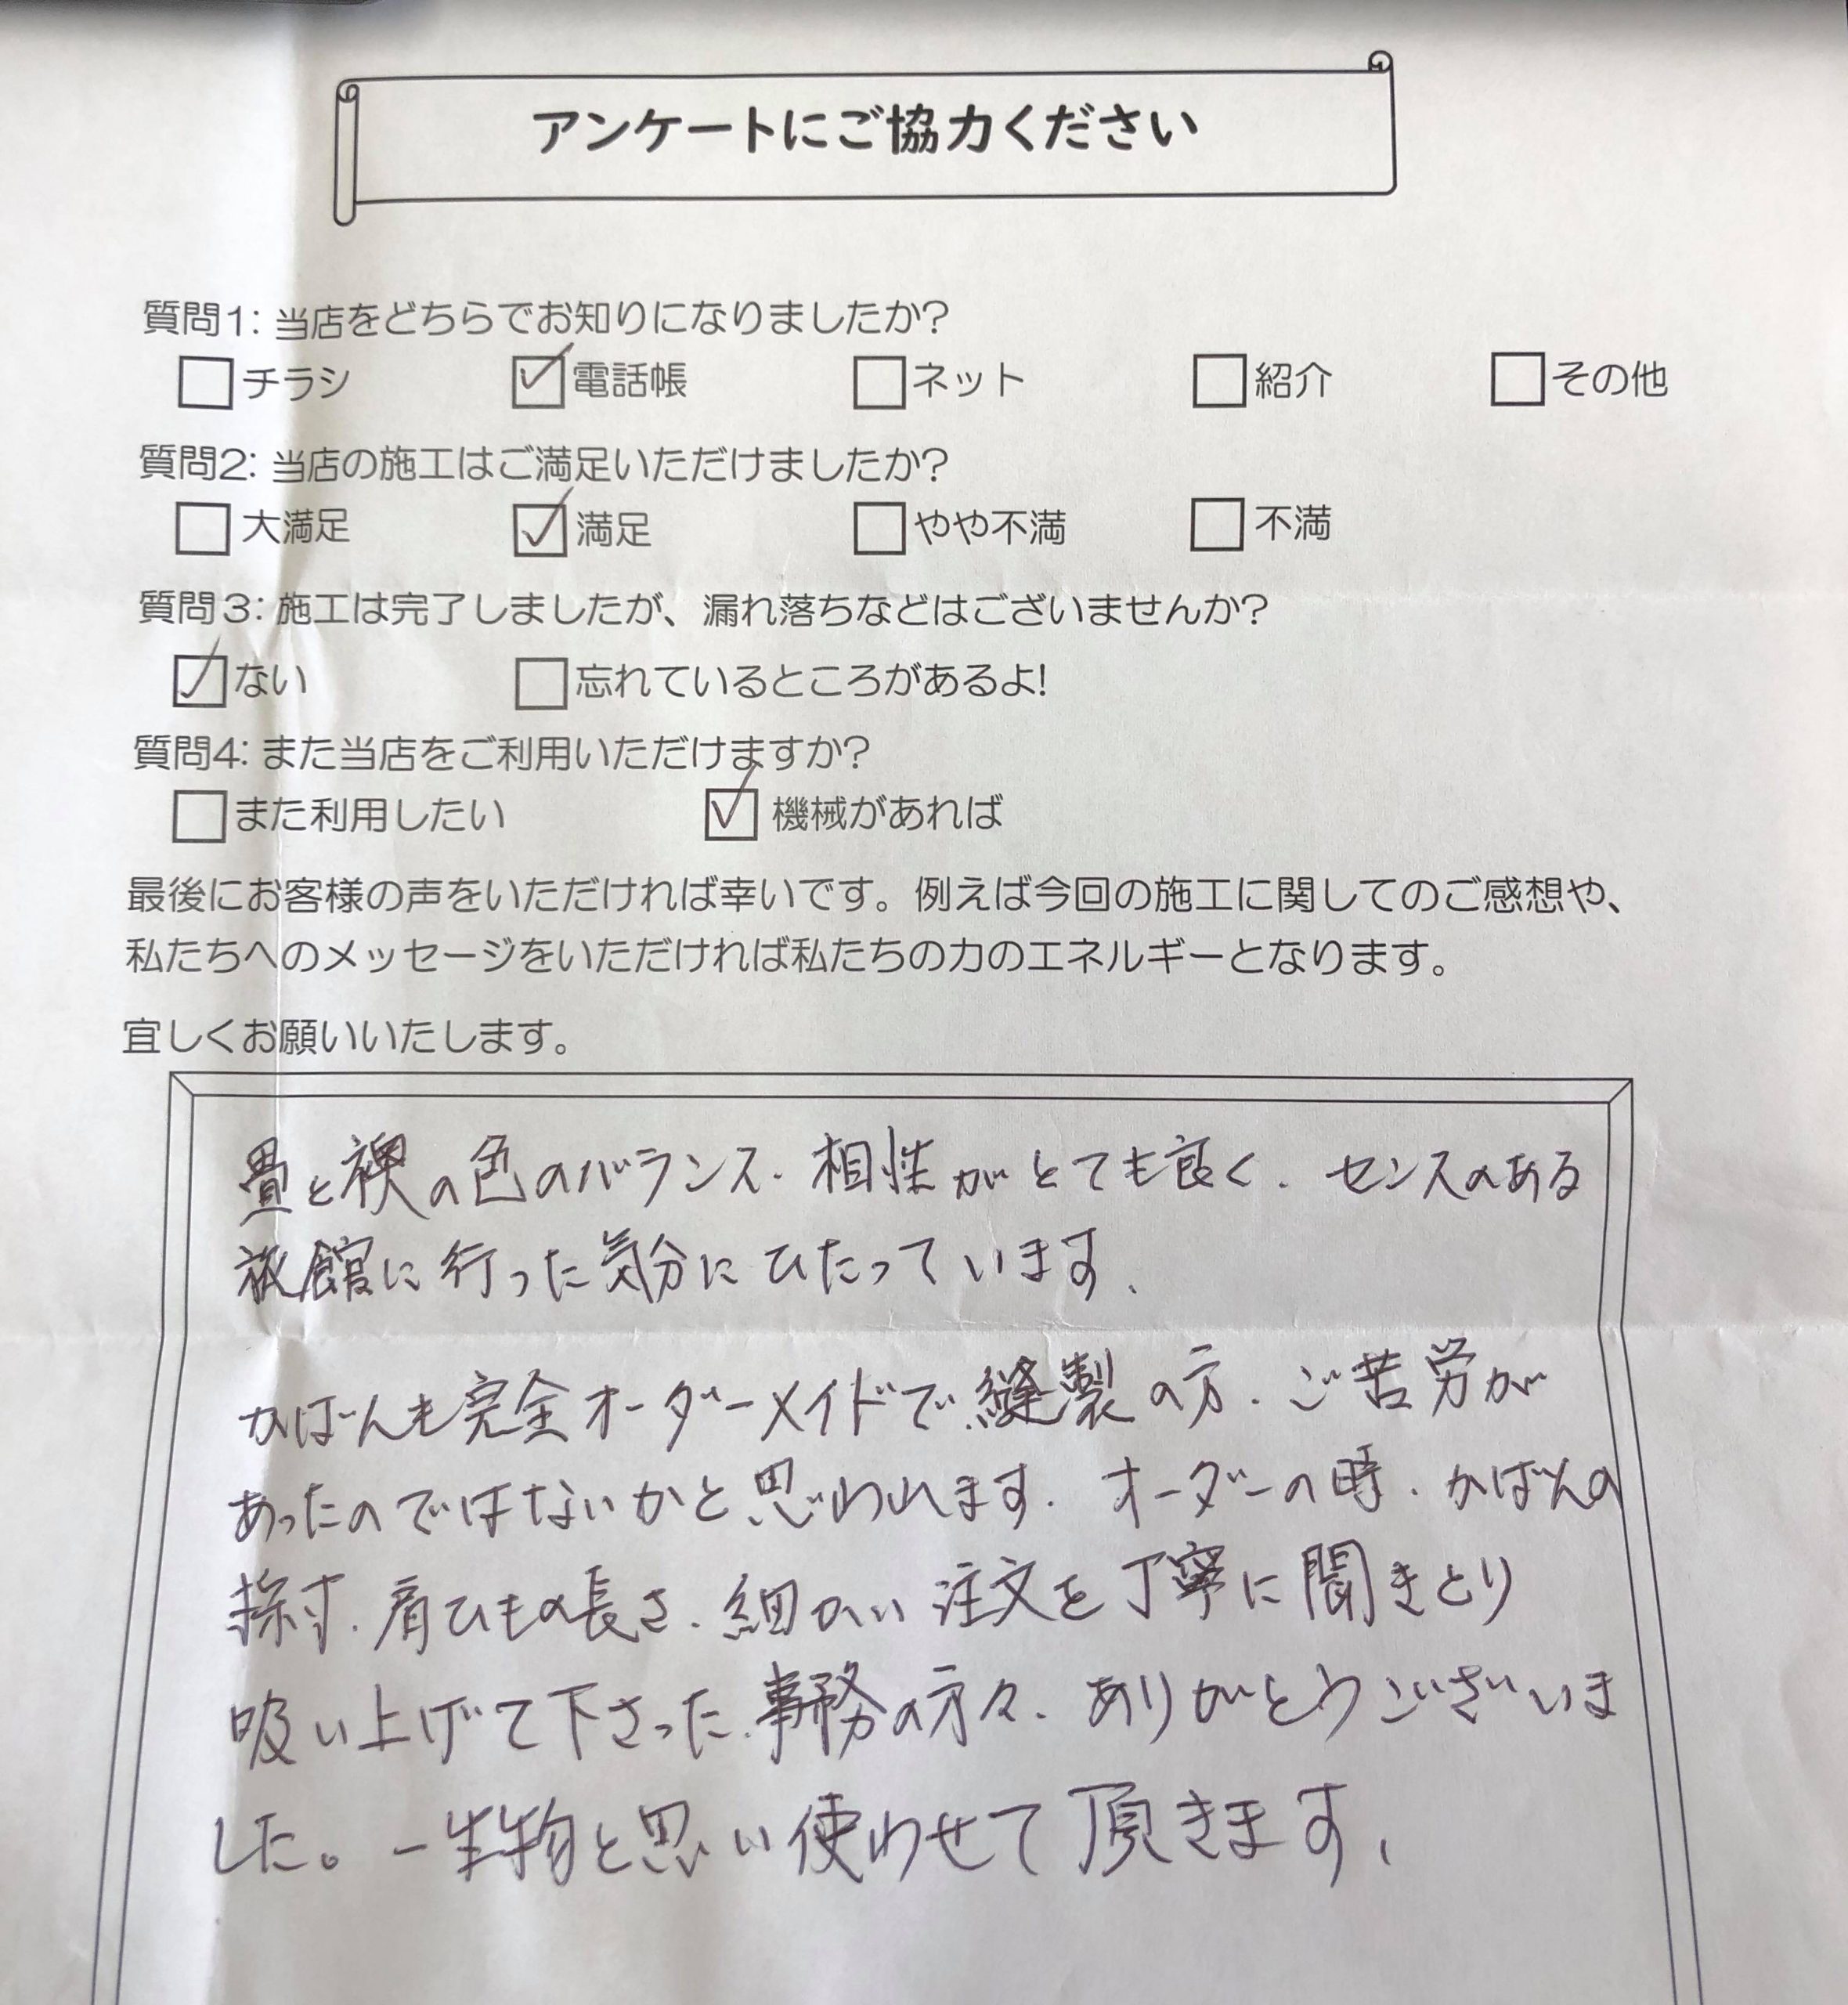 アンケートにご協力ください
質問1: 当店をどちらでお知りになりましたか?
□チラシ ☑電話帳 □ネット □紹介 □その他
質問2: 当店の施工はご満足いただけましたか?
□大満足 ☑満足 □やや不満 □不満
質問3: 施工は完了しましたが、漏れ落ちなどはございませんか?
☑ない □忘れているところがあるよ!
質問4: また当店をご利用いただけますか?
□また利用したい ☑機械があれば
最後にお客様の声をいただければ幸いです。例えば今回の施工に関してのご感想や、
私たちへのメッセージをいただければ私たちの力のエネルギーとなります。
宜しくお願いいたします。
畳と襖の色のバランス、相性がとても良く、センスのある
旅館に行った気分にひたっています、
かばんも完全オーダーメイドで縫製の方、ご苦労が
あったのではないかと思われます、オーダーの時、かばんの
採寸、肩ひもの長さ、細かい注文を丁寧に聞きとり
吸い上げて下さった、事務の方々、ありがとうございま
した。一生物と思い使わせて頂きます、